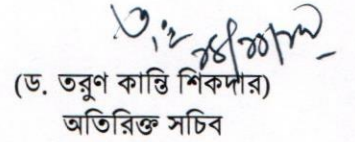 (ড. তরুণ কান্তি শিকদার)
অতিরিক্ত সচিব